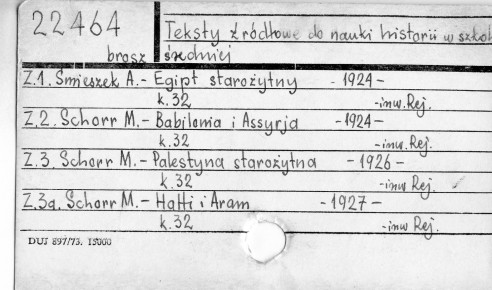 22464
brosz
Teksty źródłowe do nauki historii w szkol
średniej
Z.1. Śmieszek A. - Egipt starożytny - 1924 -
k. 32 -inw. Rej.
Z.2. Schorr M. - Babilonia i Assyrja - 1924 -
k. 32 -inw. Rej.
Z.3. Schorr M. - Palestyna starożytna - 1926 -
k. 32 -inw Rej.
Z.3a. Schorr M. - Hatti i Aram - 1927 -
k. 32 -inw Rej.
DUJ 897/73. 15000